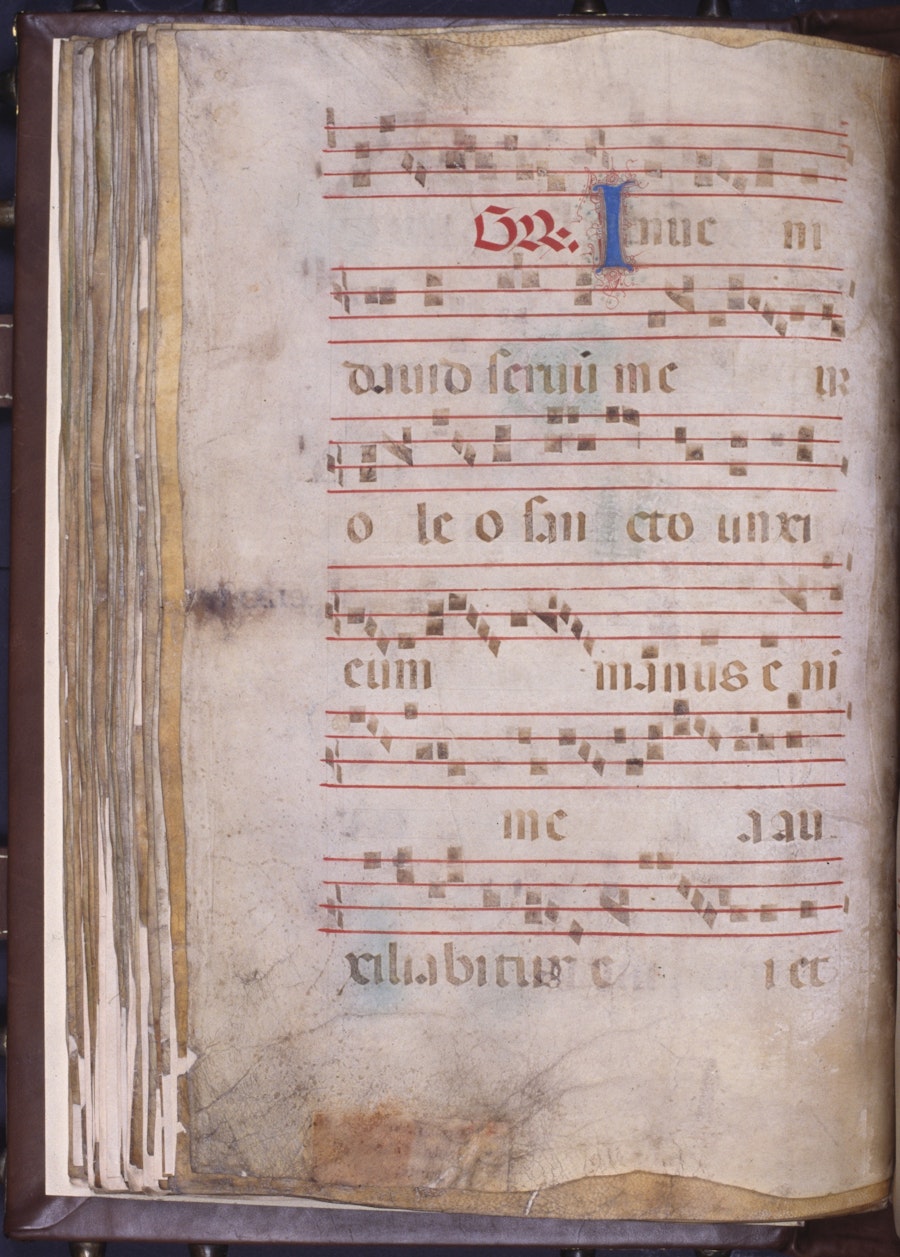 GR. Inue ni
dauid seruū me ur
o le o san cto unxi
eum manus e ni
me a au
xiliabitur e i et